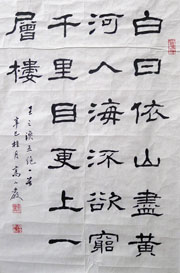 白日依山盡黃
河入海流欲窮
千里目更上一
層樓
王之渙五絕一首
辛巳桂月